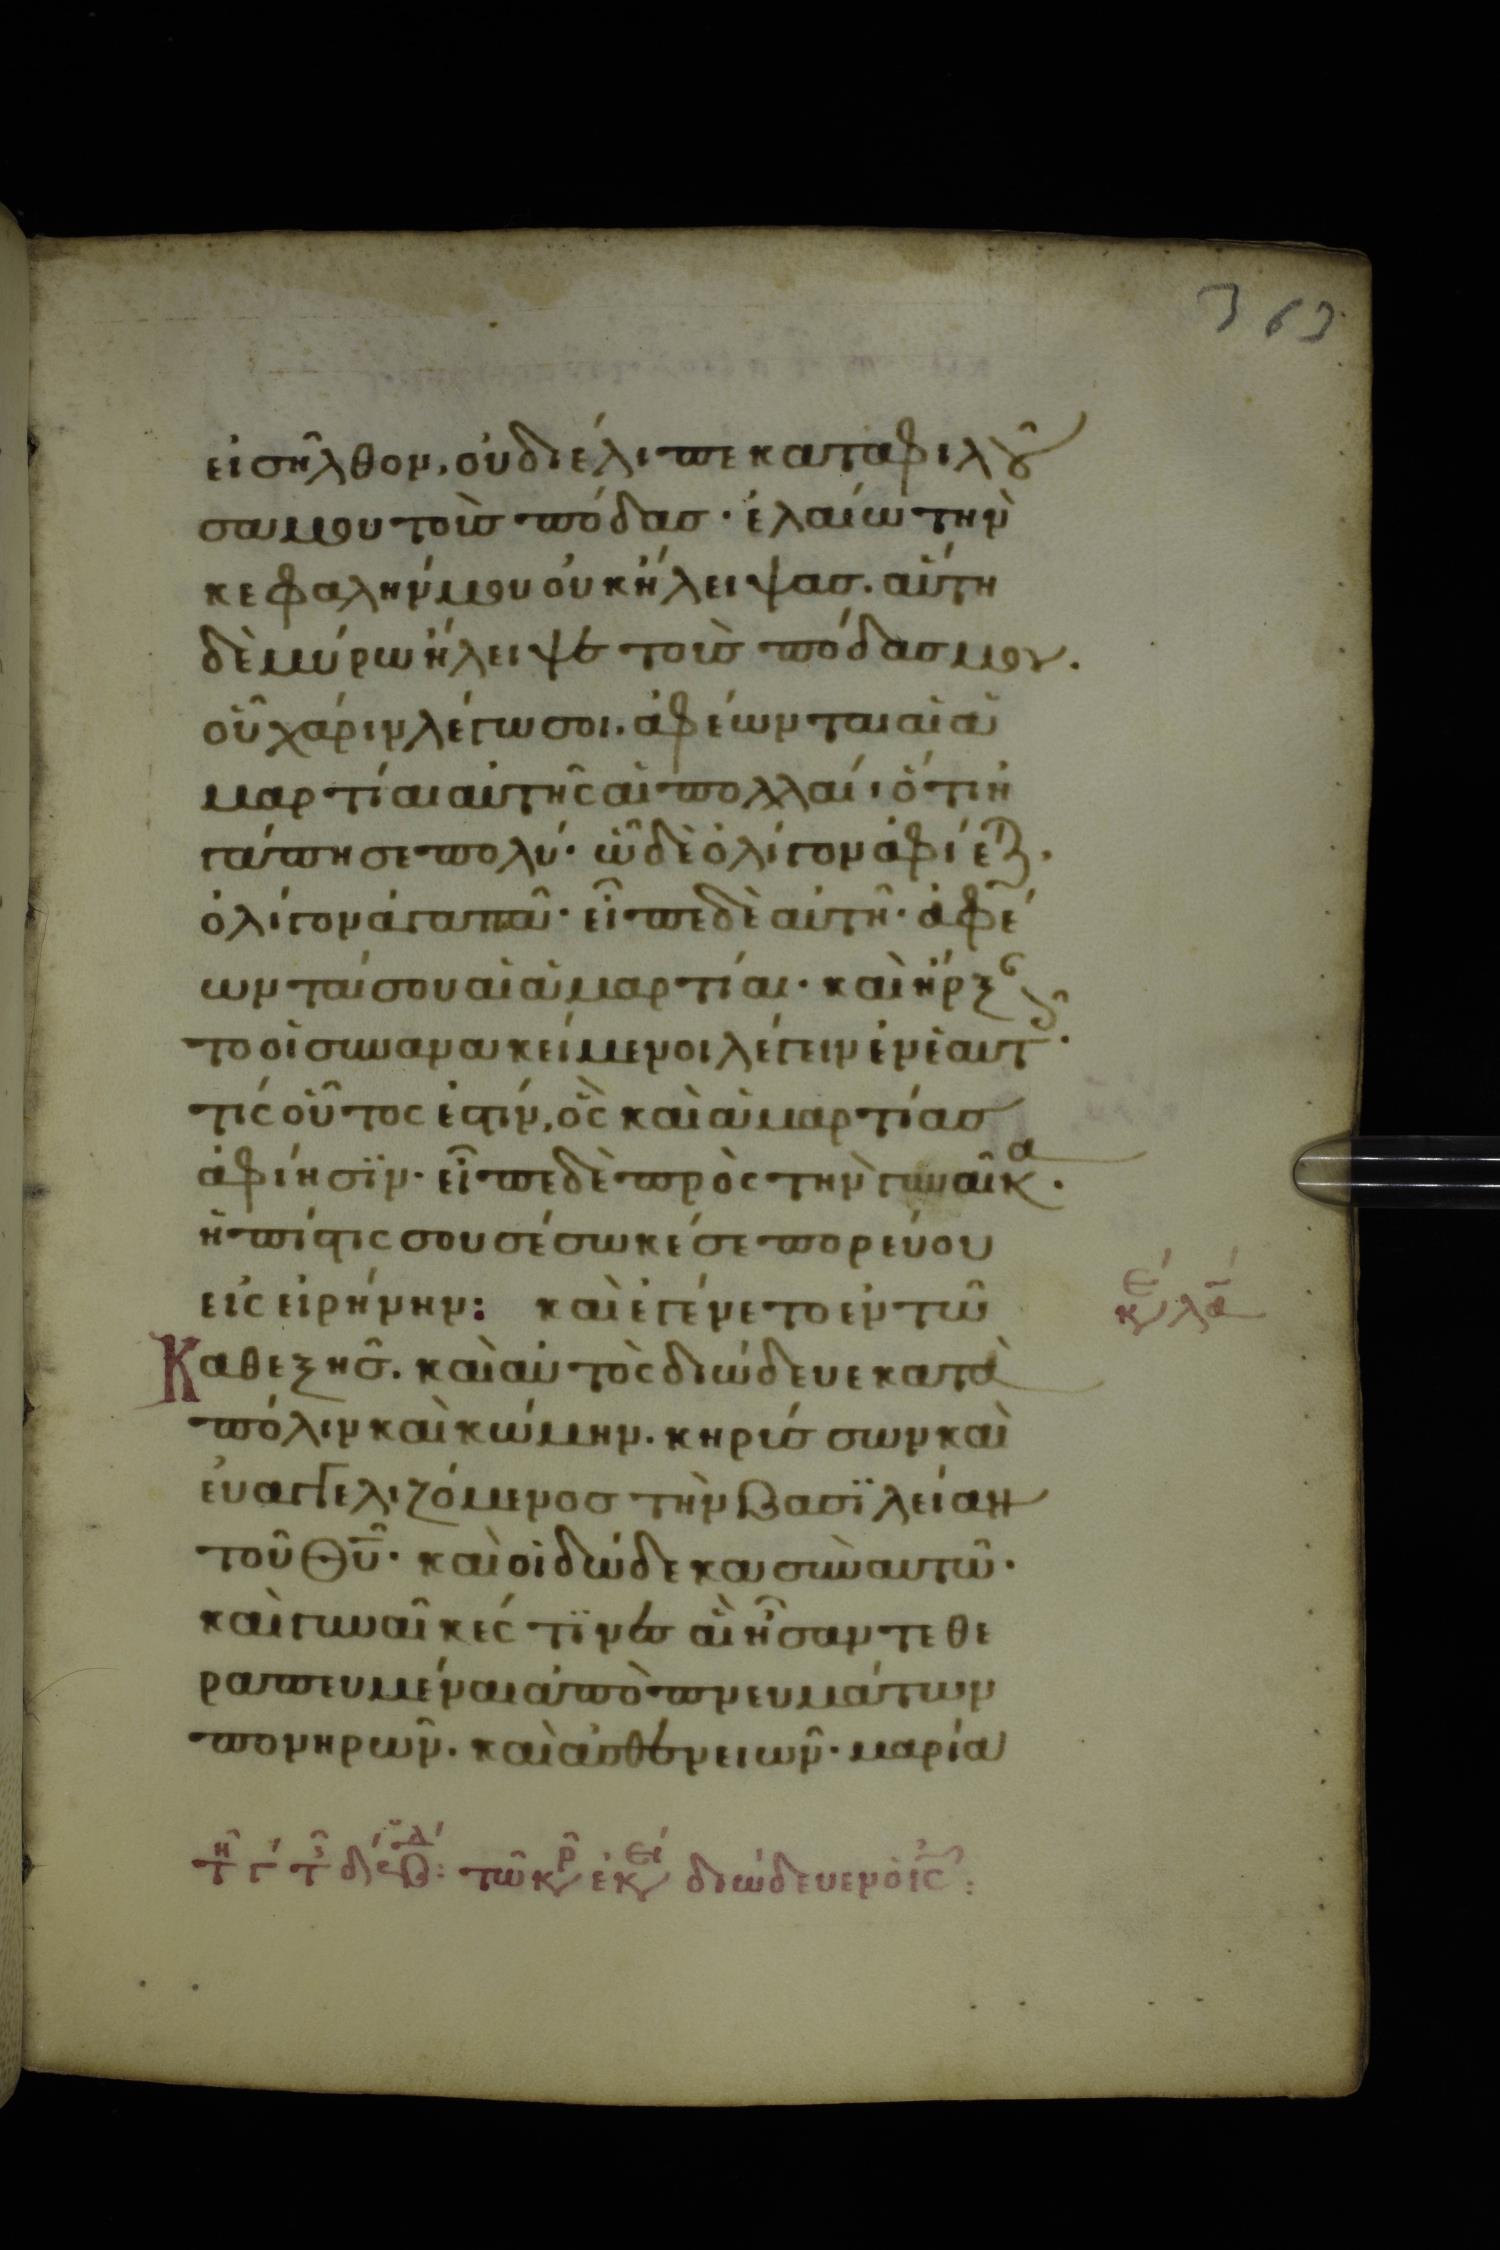 363
εἰσῆλθον, οὐ διέλιπε καταφιλοῦ
σα μου τοὺς πόδας· ἐλαίω τὴν
κεφαλήν μου οὐκ ἤλειψας. αὕτη
δὲ μύρω ἤλειψε τοὺς πόδας μου.
οὗ χάριν λέγω σοι. ἀφέωνται αἱ ἁ
μαρτίαι αὐτῆς αἱ πολλαί, ὅτι ἠ
γάπησε πολύ· ὧ δὲ ὀλίγον ἀφίεται.
ὀλίγον ἀγαπᾶ· εἶπε δὲ αὐτῆ· ἀφέ
ωνταί σου αἱ ἁμαρτίαι· καὶ ἤρξα
το οἱ συνανακείμενοι λέγειν ἐν ἑαυτοῖς·
τίς οὗτος ἐστίν, ὃς καὶ ἁμαρτίας
ἀφίησϊν· εἶπε δὲ πρὸς τὴν γυναῖκα.
ἡ πίστις σου σέσωκέ σε πορεύου
εἰς εἰρήνην: καὶ ἐγένετο ἐν τῶ
Καθεξῆς. καὶ αὐτὸς διώδευε κατὰ
πόλιν καὶ κώμην. κηρύσσων καὶ
εὐαγγελιζόμενος τὴν βασϊλείαν
τοῦ Θῦ· καὶ οἱ δώδεκα σὺν αυτῶ·
καὶ γυναῖκές τϊνες αἳ ἦσαν τεθε
ραπευμέναι ἀπὸ πνευμάτων
πονηρῶν. καὶ ἀσθενειῶν· μαρία
τῶ κρ ἐκει διώδευεν ὁ ἰς: